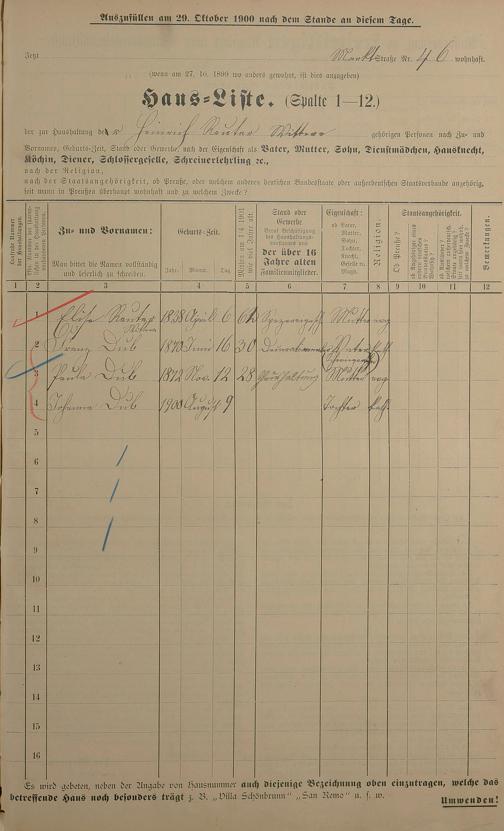 Auszufüllen am 29. Oktober 1900 nach dem Stande an diesem Tage.
Jetzt Markt Straße Nr. 46 wohnhaft.
(wenn am 27. 10. 1899 wo anders gewohnt, ist dies anzugeben)
Haus=Liste. (Spalte 1—12.)
der zur Haushaltung de r Heinrich Reuter Wittwe gehörigen Personen nach Zu- und
Vornamen, Geburts-Zeit, Stand oder Gewerbe, nach der Eigenschaft als Vater, Mutter, Sohn, Dienstmädchen, Hausknecht,
Köchin, Diener, Schlossergeselle, Schreinerlehrling ꝛc.,
nach der Religion,
nach der Staatsangehörigkeit, ob Preuße, oder welchem anderen deutschen Bundesstaate oder außerdeutschen Staatsverbande angehörig,
seit wann in Preußen überhaupt wohnhaft und zu welchem Zwecke?
Zu- und Vornamen:
Man bittet die Namen vollständig und leserlich zu schreiben.
Geburts-Zeit.
Jahr. Monat. Tag.
Stand oder Gewerbe
der über 16 Jahre alten Familienmitglieder.
Eigenschaft:
ob Vater, Mutter, Sohn, Tochter, Knecht, Geselle o. Magd.
Religion.
Staatsangehörigkeit.
Ob Preuße?
Bemerkungen.
1 2 3 4 5 6 7 8 9 10 11 12
1 Elise Reuter 1838 April 6 62 Mutter evg
2 Franz Dub 1870 Juni 16 30 Vater kath
3 Paula Dub 1872 Nov. 12 28 Haushaltung Mutter evg
4 Johanna Dub 1900 August 9 Tochter kath.
5
6
7
8
9
10
11
12
13
14
15
16
Es wird gebeten, neben der Angabe von Hausnummer auch diejenige Bezeichnung oben einzutragen, welche das
betreffende Haus noch besonders trägt z. B. „Villa Schönbrunn" „San Remo" u. s. w.
Umwenden!